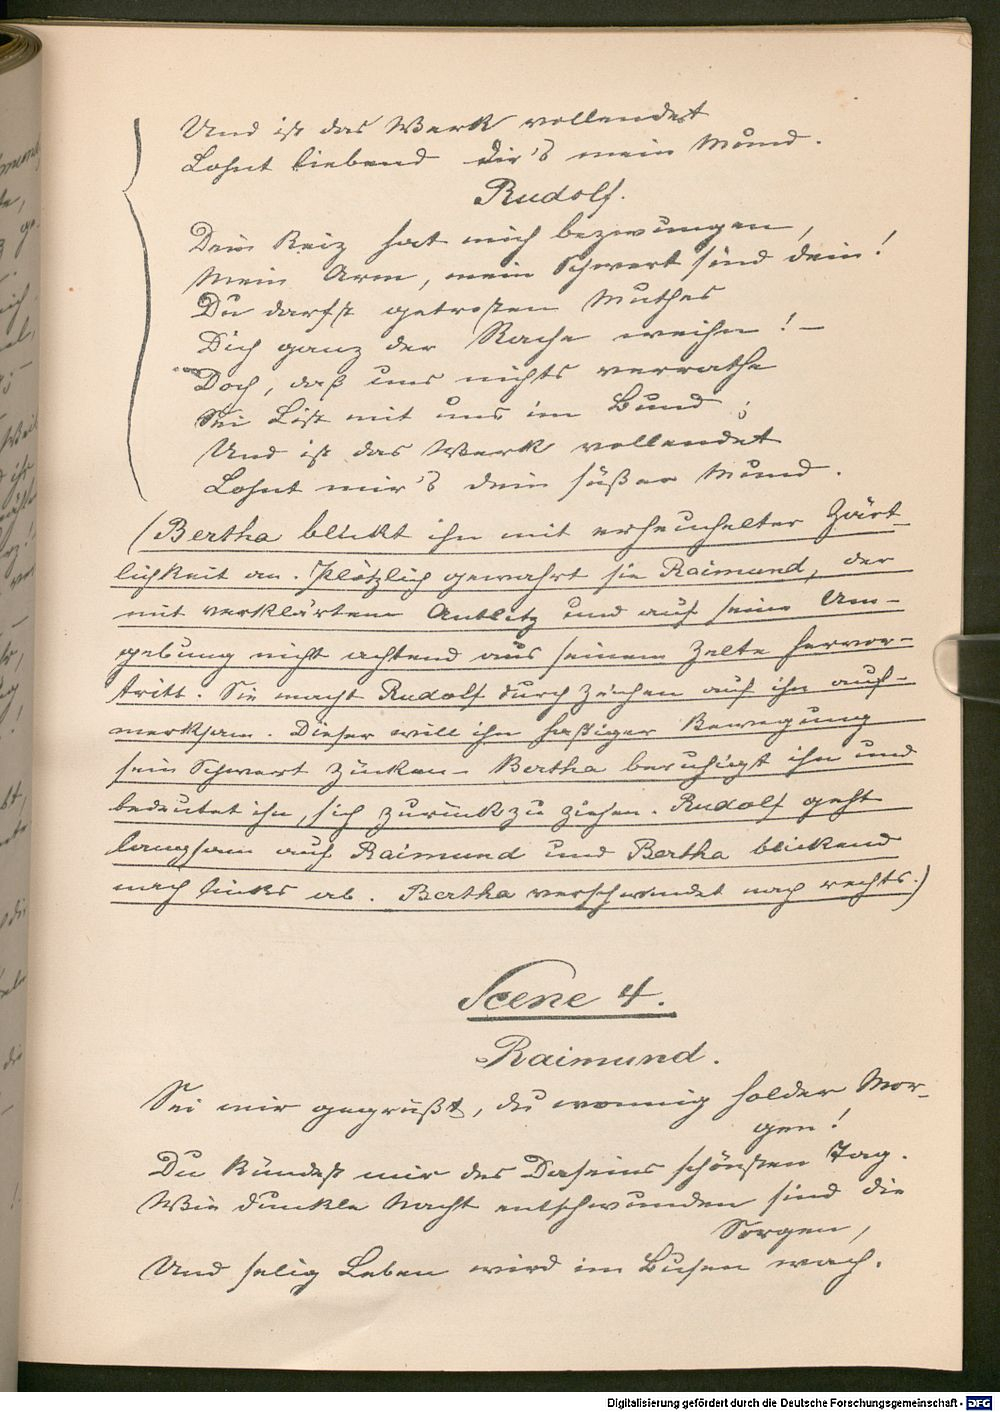 Und ist das Werk vollendet
Lohnt liebend dir's mein Mund.
Rudolf.
Dein Reiz hat mich bezwungen,
Mein Arm, mein Schwert sind dein!
Du darfst getrosten Muthes
Dich ganz der Rache weihn! –
Doch, daß uns nichts verrathe
Sei List mit uns im Bund;
Und ist das Werk vollendet
Lohnt mir's dein süßer Mund.
(Bertha blickt ihn mit erheuchelter Zärt-
lichkeit an. Plötzlich gewahrt sie Raimund, der
mit verklärtem Antlitz und auf seine Um-
gebung nicht achtend aus seinem Zelte hervor-
tritt. Sie macht Rudolf durch Zeichen auf ihn auf-
merksam. Dieser will in hastiger Bewegung
sein Schwert zücken – Bertha beruhigt ihn und
bedeutet ihn, sich zurückzuziehen. Rudolf geht
langsam auf Raimund und Bertha blickend
nach links ab. Bertha verschwindet nach rechts.)
Scene 4.
Raimund.
Sei mir gegrüßt, du wonnig holder Mor-
gen!
Du kündest mir des Daseins schönsten Tag.
Wie dunkle Nacht entschwunden sind die
Sorgen,
Und selig Leben wird im Busen wach.
Digitalisierung gefördert durch die Deutsche Forschungsgemeinschaft - DFG